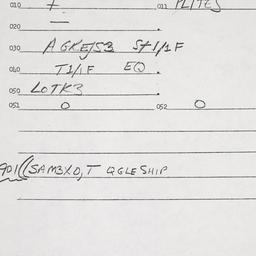 010 + 011 PLITES
020 —
030 AGKEJSB St1/1F
040 T1/1F EQ.
050 LOTK3
051 0 052 0
901 ((SAM3X0,T QGLESHIP